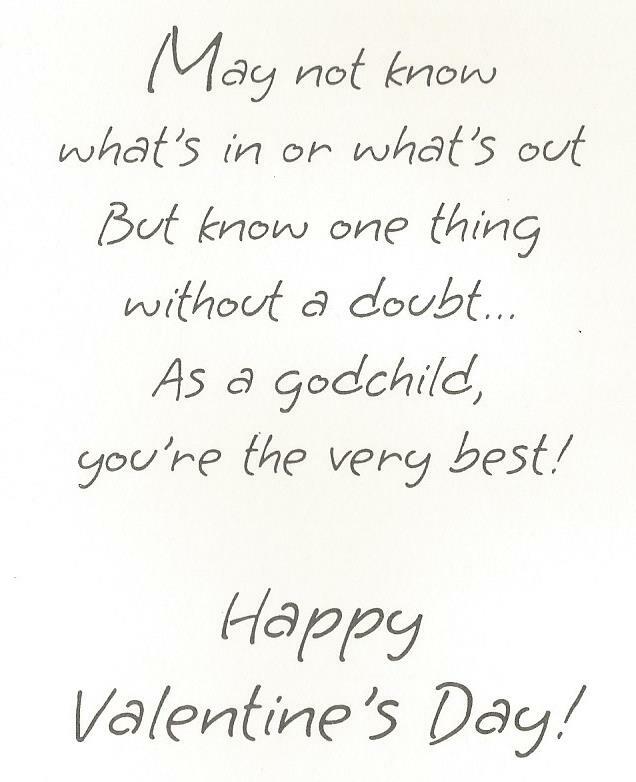 May not know
what's in or what's out
But know one thing
without a doubt...
As a godchild,
you're the very best!
Happy
Valentine's Day!